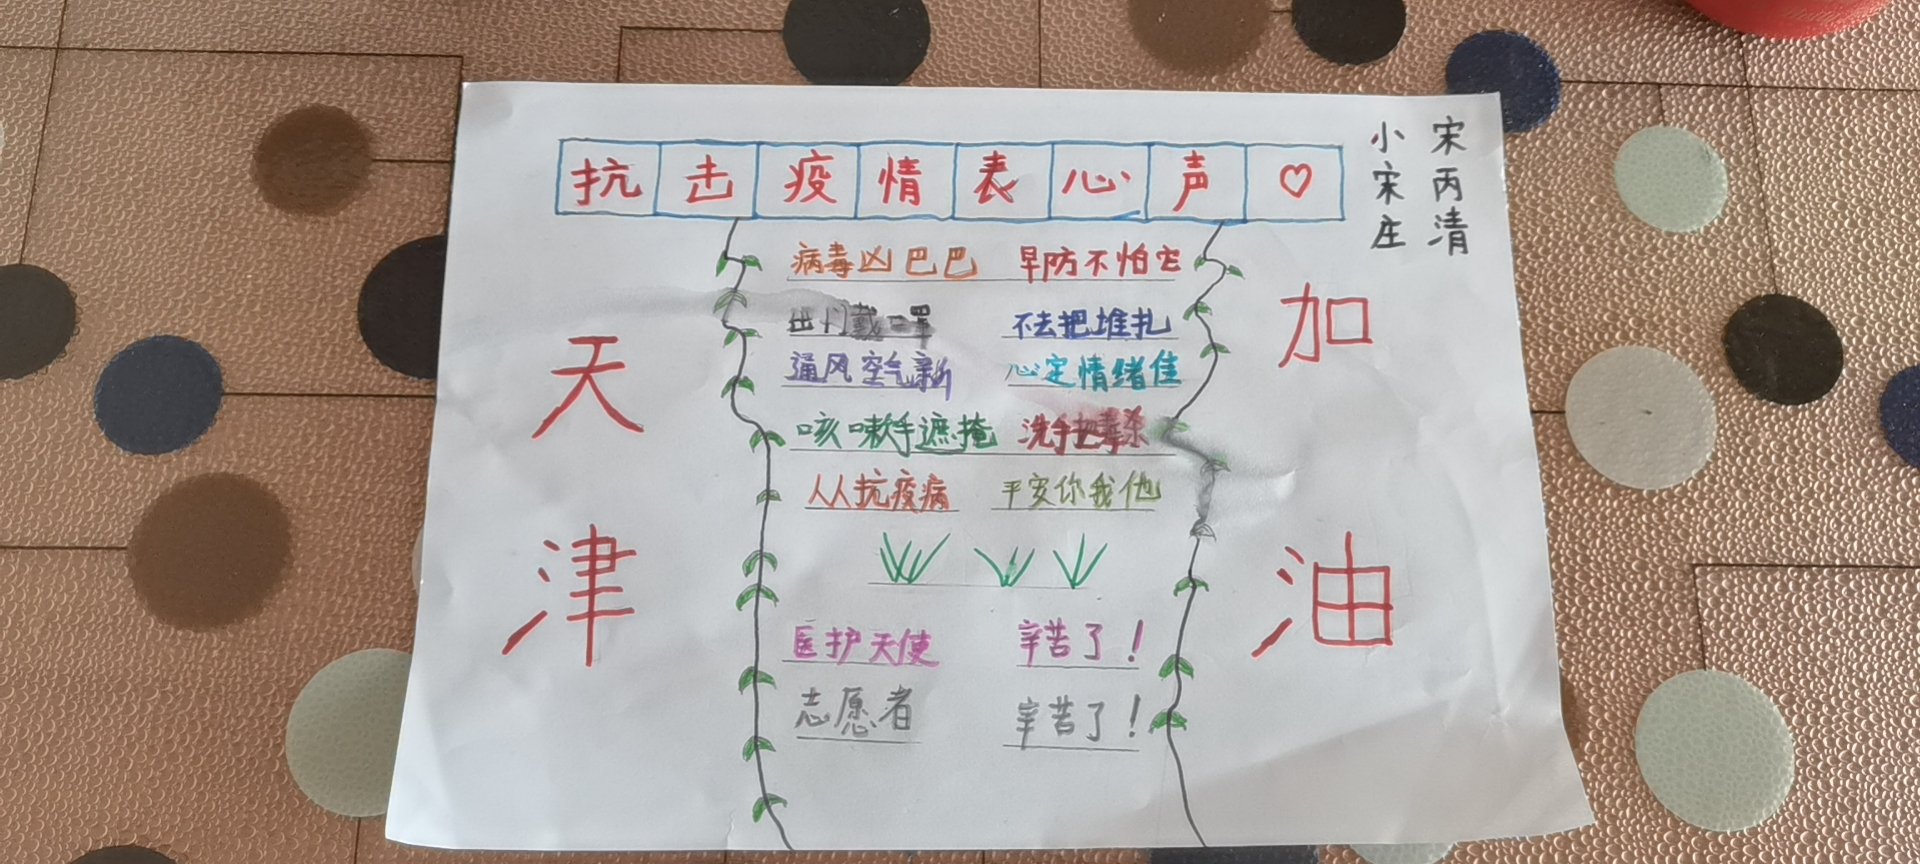 抗击疫情表心声♡
宋丙清
小宋庄
天津
加油
病毒凶巴巴 早防不怕它
出门戴口罩 不去把堆扎
通风空气新 心定情绪佳
咳嗽手遮掩 洗手把毒杀
人人抗疫病 平安你我他
医护天使 辛苦了！
志愿者 辛苦了！